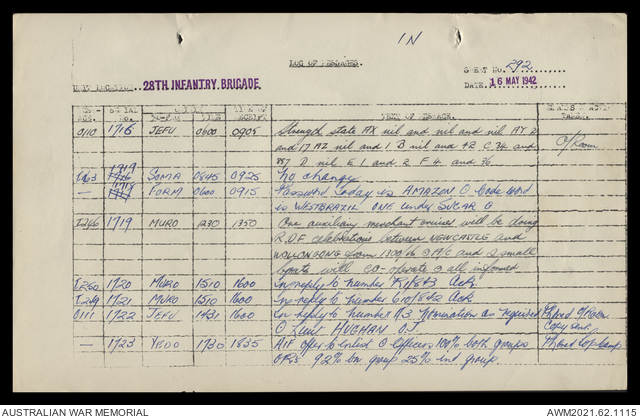 IN
LOG OF MESSAGES.
SHEET NO. 292
UNIT LOCATION 28TH. INFANTRY. BRIGADE. DATE. 16 MAY 1942
SERIAL NO. TIME OF RECEIPT TEXT OF MESSAGE. TAKEN.
0110 1716 JEFU 0600 0905 Strength state AX nil and nil and nil AY 2
and 17 AZ nil and 1 B nil and 42 C 34 and O/Room
857 D nil E 1 and 2 F 4 and 36
1717 SOMA 0845 0925 No change
— 1718 FORM 0600 0915 Password today is AMAZON O Code word
is WESTBRAZIL ONE under SUGAR O
I246 1719 MURO 1230 1350 One auxiliary merchant cruiser will be doing
R.D.F. calibrations between NEWCASTLE and
WOLLONGONG from 1300/16 O A/C and small
boats will co-operate O all informed
I250 1720 MURO 1510 1600 In reply to number
I249 1721 MURO 1510 1600 In reply to number
0111 1722 JEFU 1431 1600 In reply to number nomination as required Phoned O/Room
O Lieut HUGHAN O.J. Copy sent.
— 1723 YEDO 1730 1835 AIF offer to enlist O Officers 100% both groups Phoned
ORs 92% bn group 25% ind group.
AUSTRALIAN WAR MEMORIAL AWM2021.62.1115